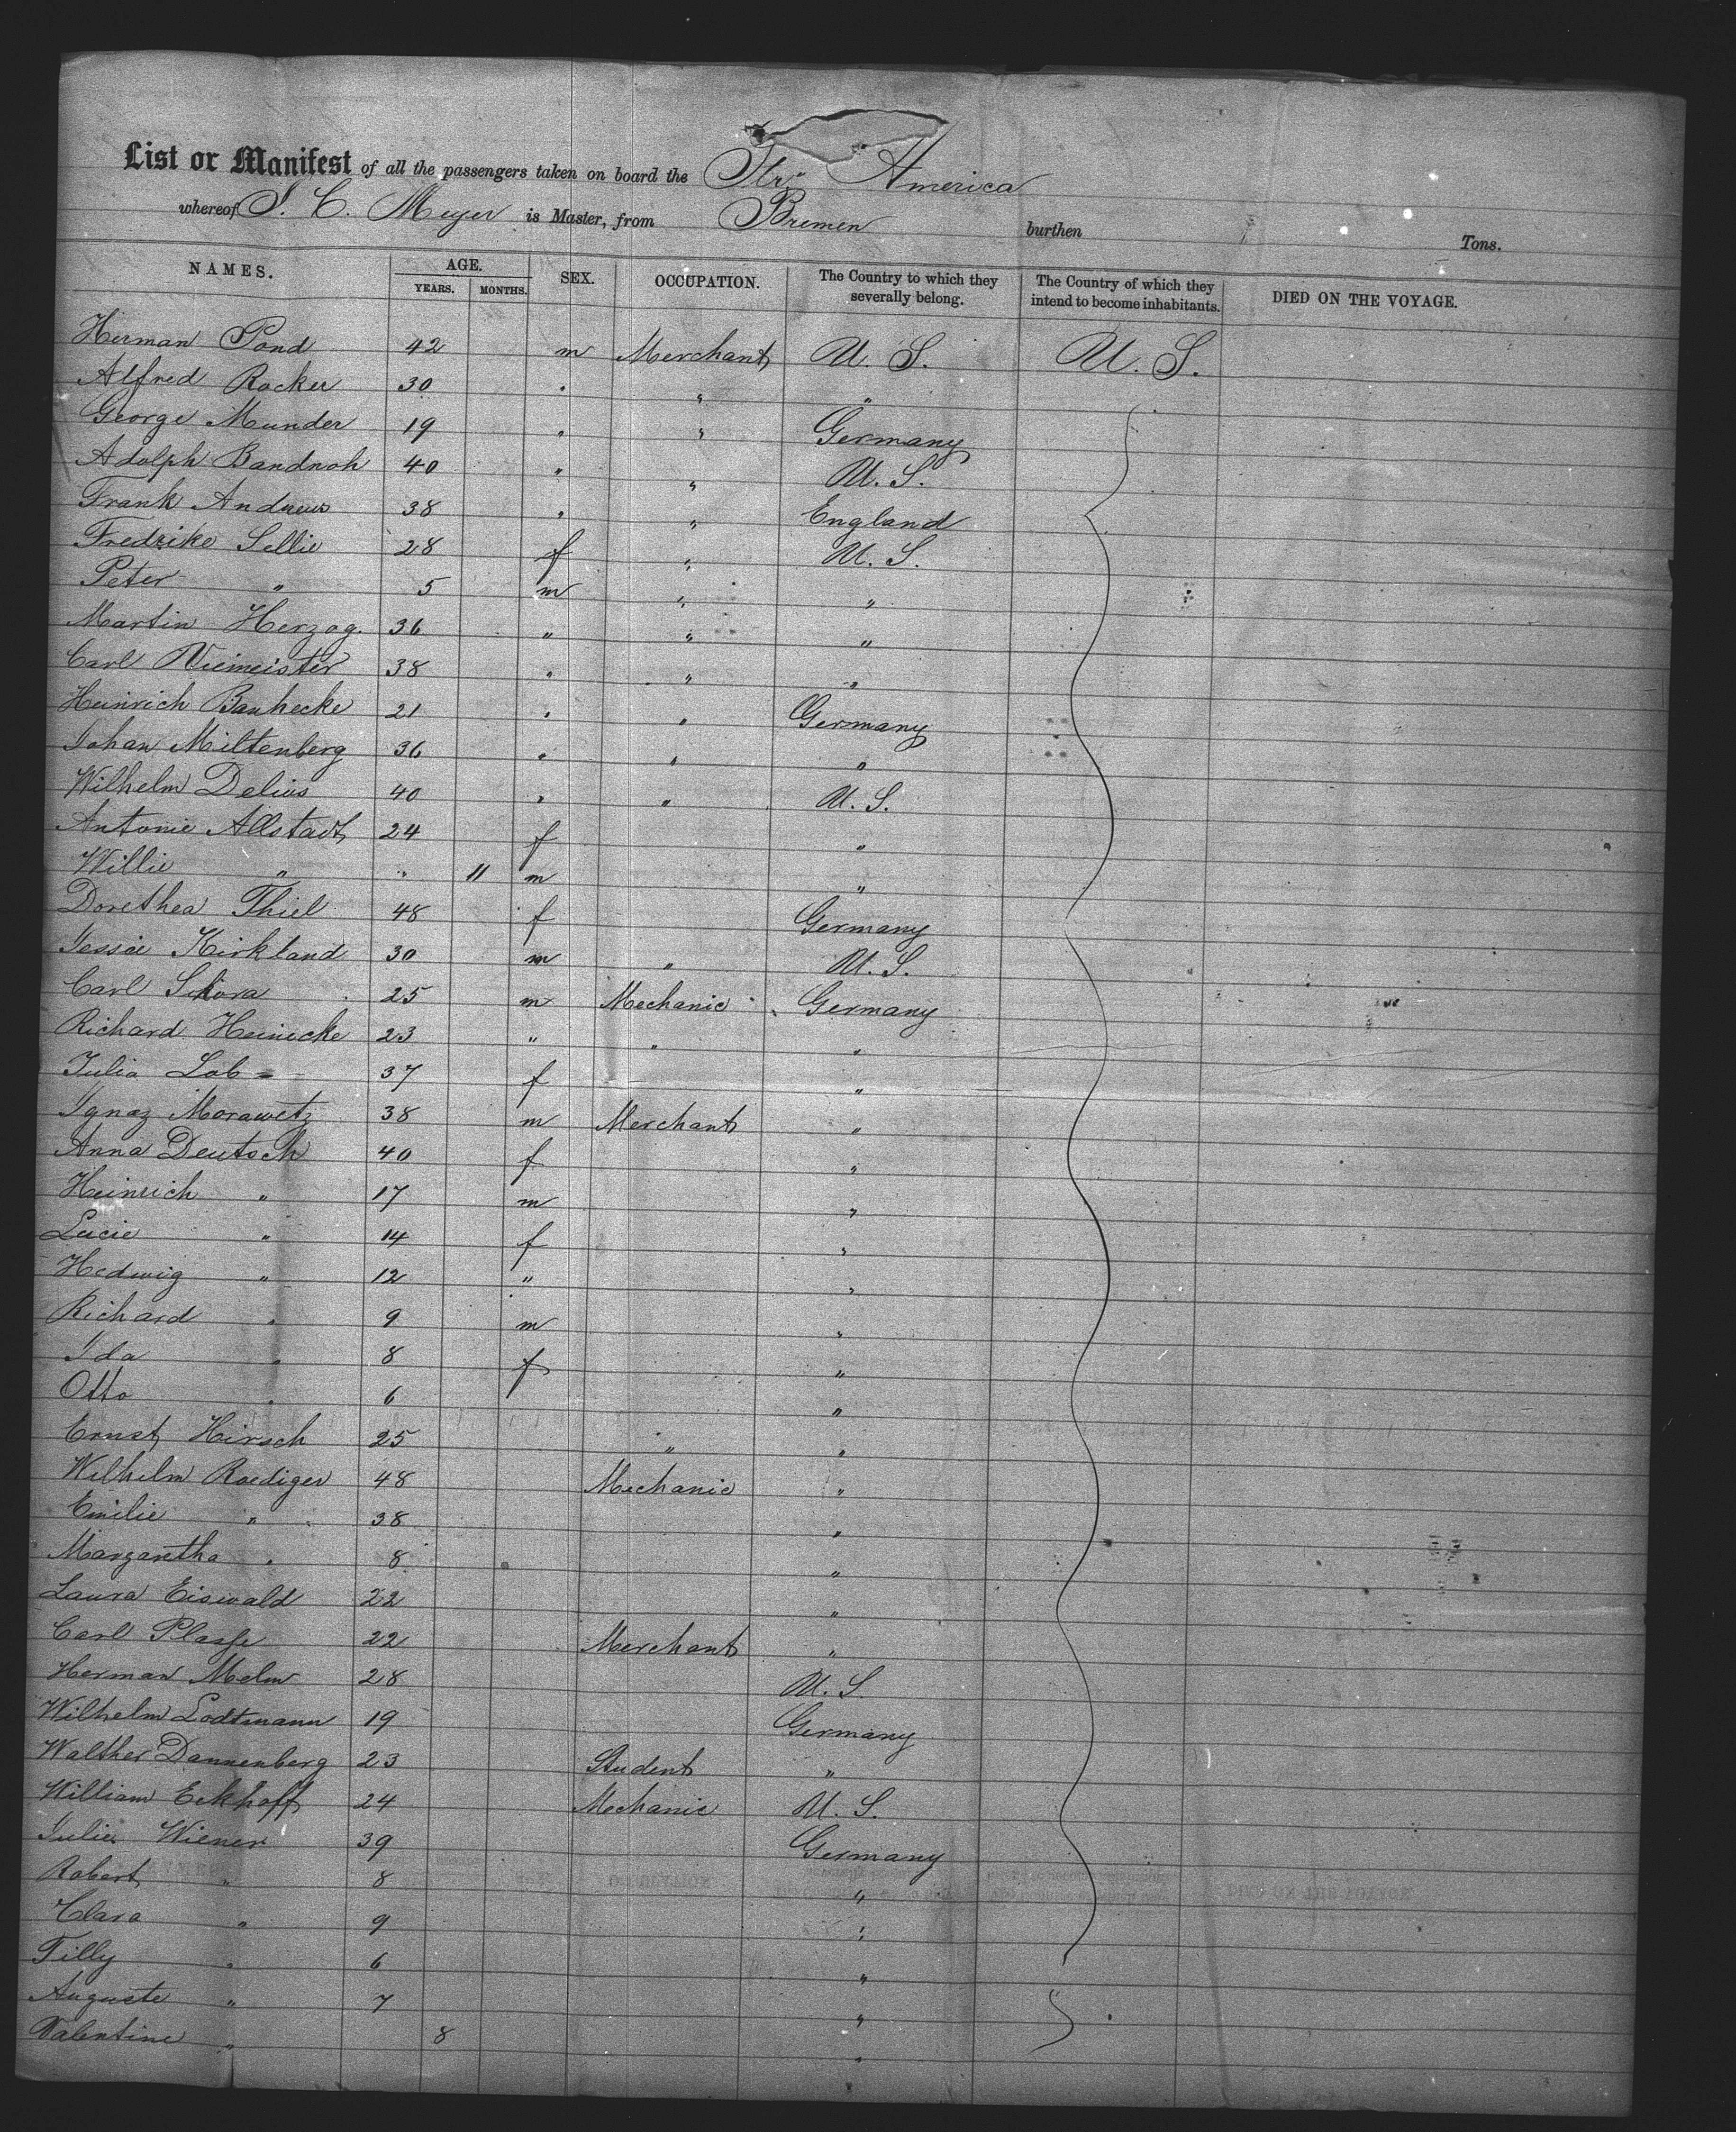 List or Manifest of all the passengers taken on board the Str. America
whereof J. C. Meyer is Master, from Bremen burthen Tons.
NAMES. AGE. YEARS. MONTHS. SEX. OCCUPATION. The Country to which they severally belong. The Country of which they intend to become inhabitants. DIED ON THE VOYAGE.
Herman Pond 42 m Merchant U. S. U. S.
Alfred Rocker 30 " " "
George Munder 19 " " Germany
Adolph Bandnoh 40 " " U. S.
Frank Andrews 38 " " England
Fredrike Sellie 28 f " U. S.
Peter " 5 m " "
Martin Herzog. 36 " " "
Carl Niemeister 38 " " "
Heinrich Banhecke 21 " " Germany
Johan Miltenberg 36 " " "
Wilhelm Delius 40 " " U. S.
Antonie Allstadt 24 f "
Willie " " 11 m "
Dorethea Thiel 48 f Germany
Jessie Kirkland 30 m " U. S.
Carl Schora 25 m Mechanic Germany
Richard Heinicke 23 " " "
Julia Lob 37 f "
Ignaz Morawetz 38 m Merchant "
Anna Deutsch 40 f "
Heinrich " 17 m "
Lucie " 14 f "
Hedwig " 12 " "
Richard " 9 m "
Ida " 8 f "
Otto " 6 "
Ernst Hirsch 25 " "
Wilhelm Roediger 48 Mechanic "
Emilie " 38 "
Margaretha " 8 "
Laura Eiswald 22 "
Carl Plasse 22 Merchant "
Herman Melm 28 U. S.
Wilhelm Lodtmann 19 Germany
Walther Dannenberg 23 Student "
William Eckhoff 24 Mechanic U. S.
Julie Wiener 39 Germany
Robert " 8 "
Clara " 9 "
Tilly " 6 "
Auguste " 7 "
Valentine " 8 "